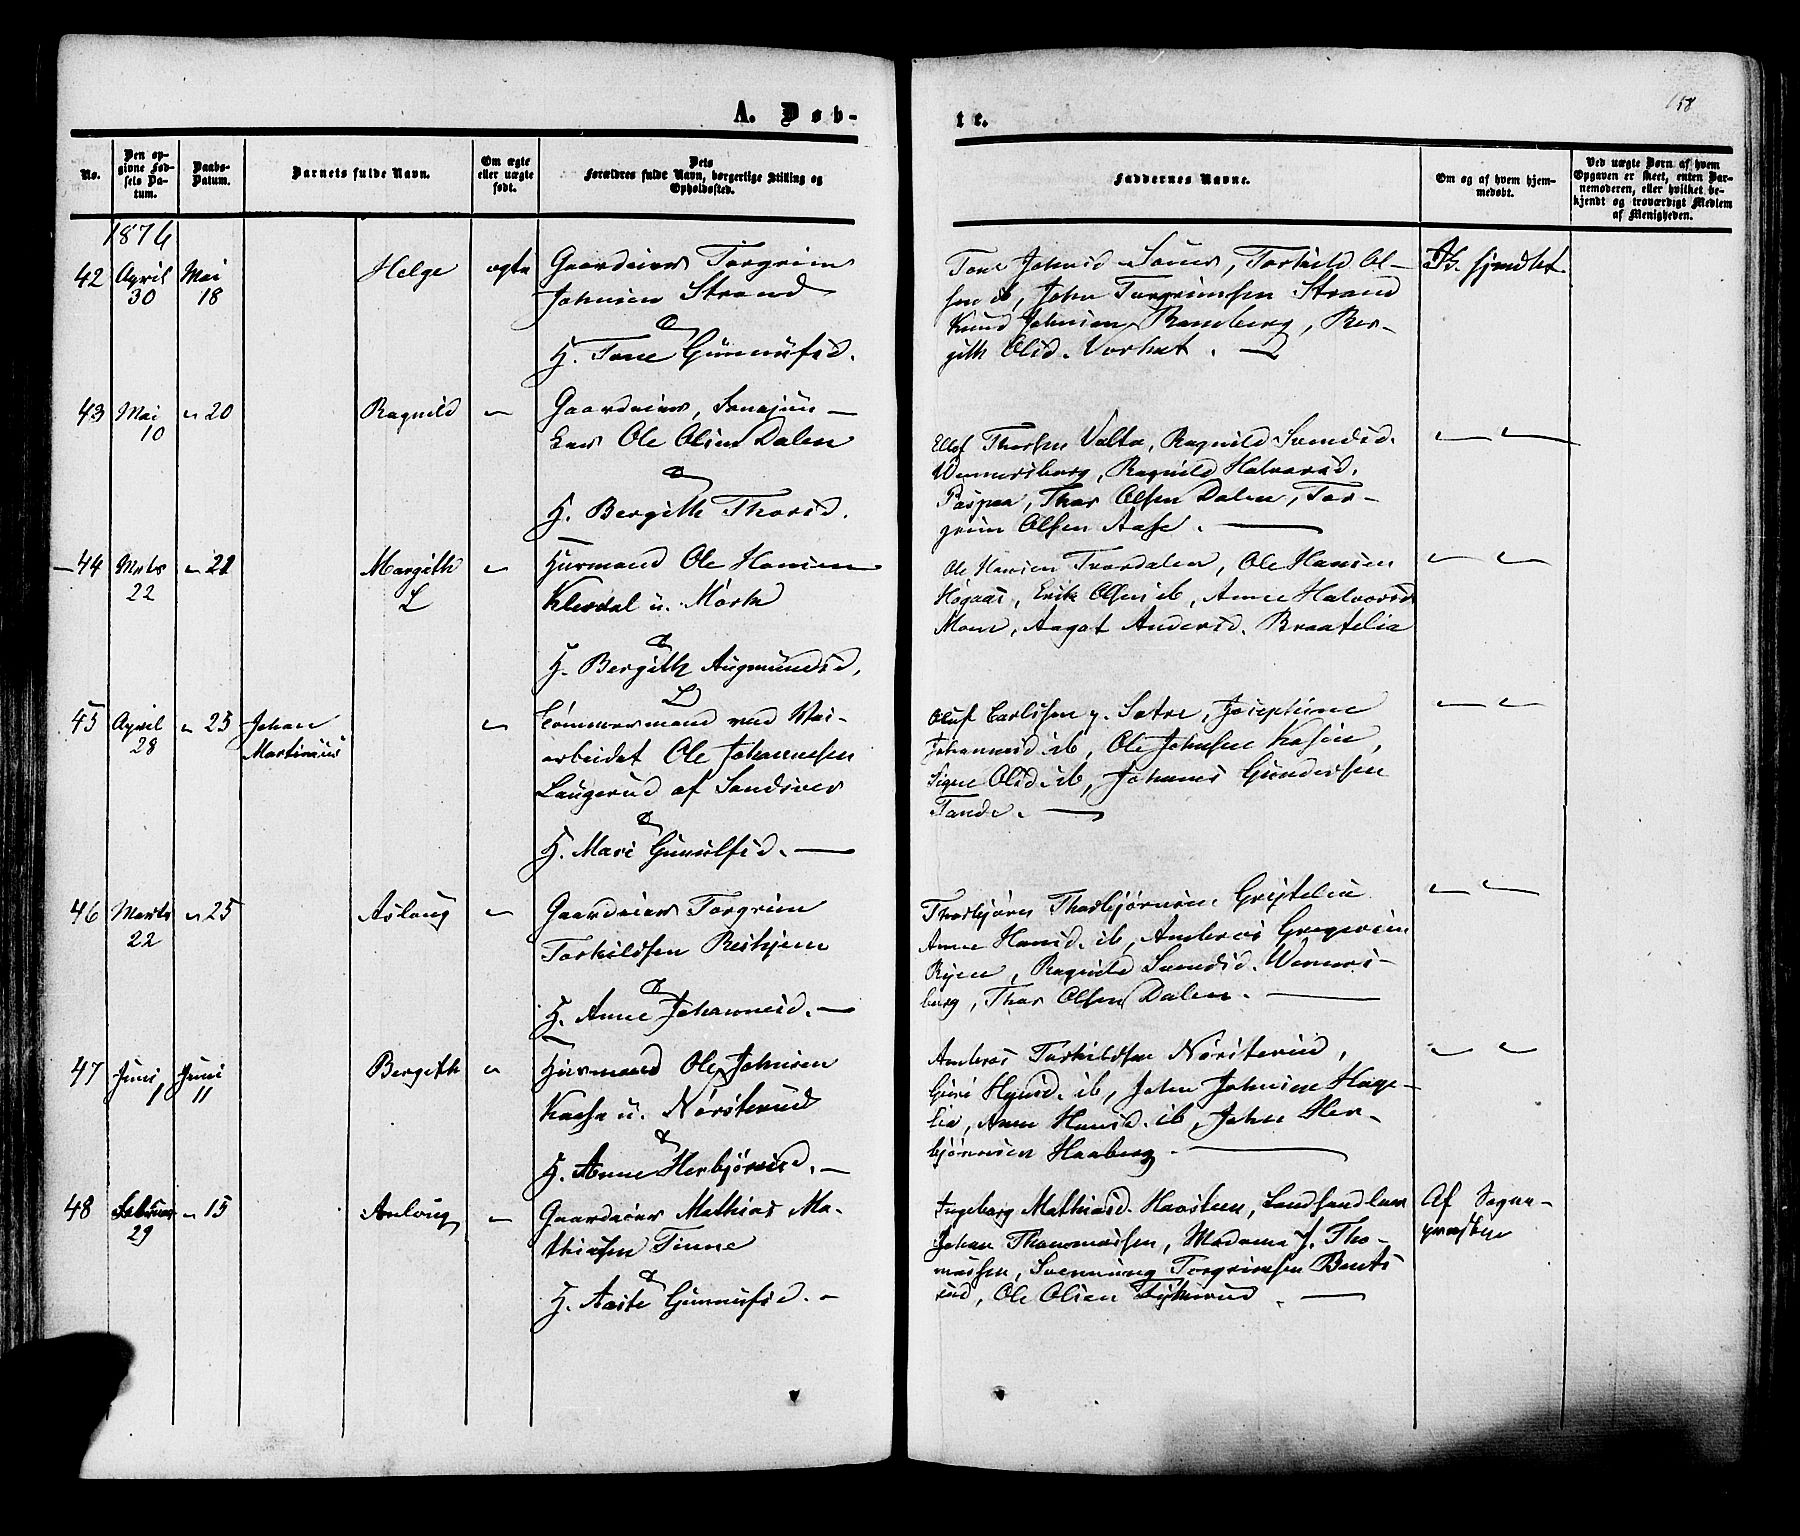 158
A. Døb-
te.
No.
Den op-
givne Fød-
sels Da-
tum.
Daabs-
Datum.
Barnets fulde Navn.
Om ægte
eller uægte
født.
Dets
Forældres fulde Navn, borgerlige Stilling og
Opholdssted.
Faddernes Navne.
Om og af hvem hjem-
medøbt.
Ved uægte Børn af hvem
Opgaven er skeet, enten Bar-
nemoderen, eller hvilket be-
kjendt og troværdigt Medlem
af Menigheden.
1876
42 April 30 Mai 18 Helge ægte
Gaardeier Torgrim
Johnsen Strand
&
H. Tone Gunnufsd.
Tone Johnsd. Torkild Ol-
sen ib, John Torgrimsen Strand
Knud Johnsen Ramberg, Ber-
gith Olsd. Vorhut.
43 Mai 10 " 20 Ragnild "
Gaardeier,
Ole Olsen Dalen
&
H. Bergith Thorsd.
Ellef Thorsen Valta, Ragnild Svendsd.
Wennersberg, Ragnild Halvorsd.
Thor Olsen Dalen, Tor-
grim Olsen Aase.
44 Marts 22 " 21 Margith "
Husmand Ole Hansen
u. Mørk
&
H. Bergith Augmundsd.
Ole Hansen Ole Hansen
Høgaas, Erik Olsen ib, Anne Halvorsd
Moen, Aagot Andersd. Braatelia
45 April 28 " 25 Johan
Martinius "
Tømmermand ved Vei-
arbeidet Ole Johannesen
Laugerud af Sandsver
&
H. Mari Gunulfsd.
Oluf Carlssen y. Satre, Josephine
Johannesd ib, Ole Johnsen Kasin,
Signe Olsd ib, Johannes Gundersen
Tande.
46 Marts 22 " 25 Aslaug "
Gaardeier Torgrim
Torkildsen Reshjem
&
H. Anne Johannesd.
Thorbjørn Thorbjørnsen
Anne Hansd. ib, Anders Gregersen
Ryen, Ragnild Svendsd. Wenners-
berg, Thor Olsen Dalen.
47 Juni 1 Juni 11 Bergith "
Husmand Ole Johnsen
Kaasa u. Nørsterud
&
H. Anne Herbjørnsd.
Anders Torkildsen Nørsterud,
Guri ib, John Johnsen Hage-
lia, Anne Hansd. ib, John Her-
bjørnsen Haaberg
48 Februar 29 " 15 Anlaug "
Gaardeier Mathias Ma-
thiasen Tinne
&
H. Aaste Gunnufsd.
Ingeborg Mathiasd. Landhandler
Johan Thommassen, Madame J. Tho-
massen, Svennung Torgrimsen Bents
rud, Ole Olsen
Af Sogne-
præsten